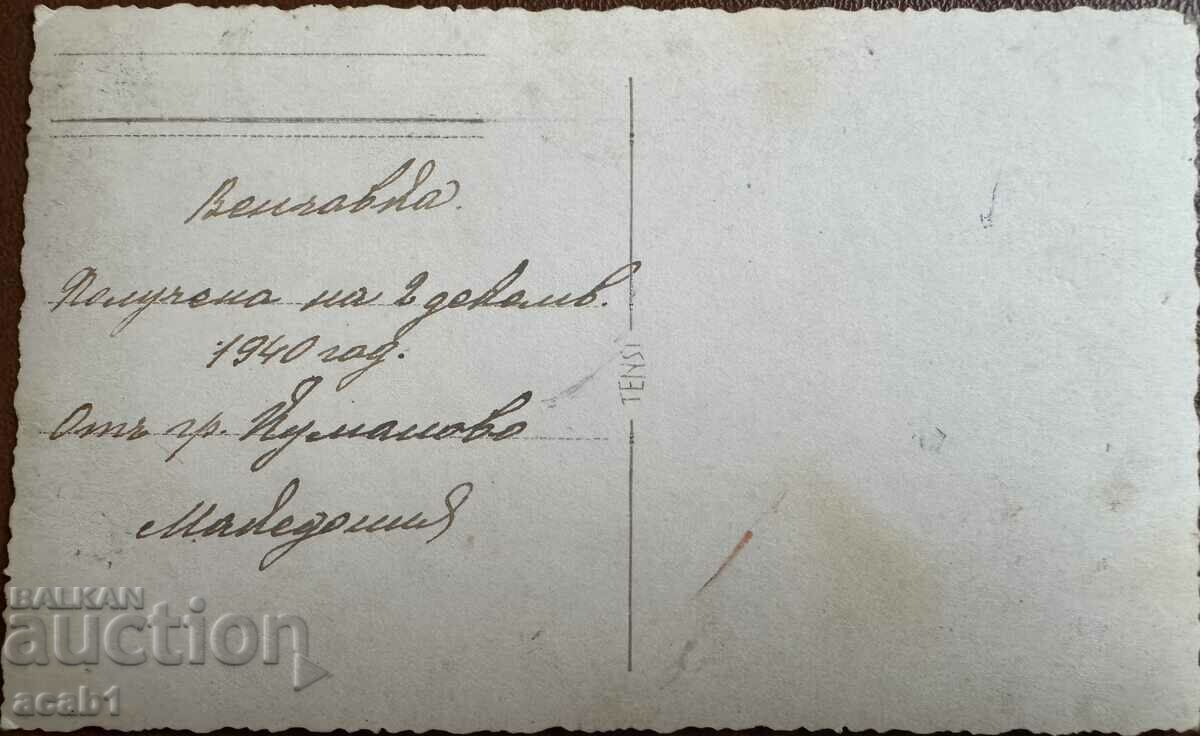 Венчавка.
Получена на 2 декемв.
1940 год.
Отъ гр. Куманово
Македония
TENSI
BALKAN
auction
acab1